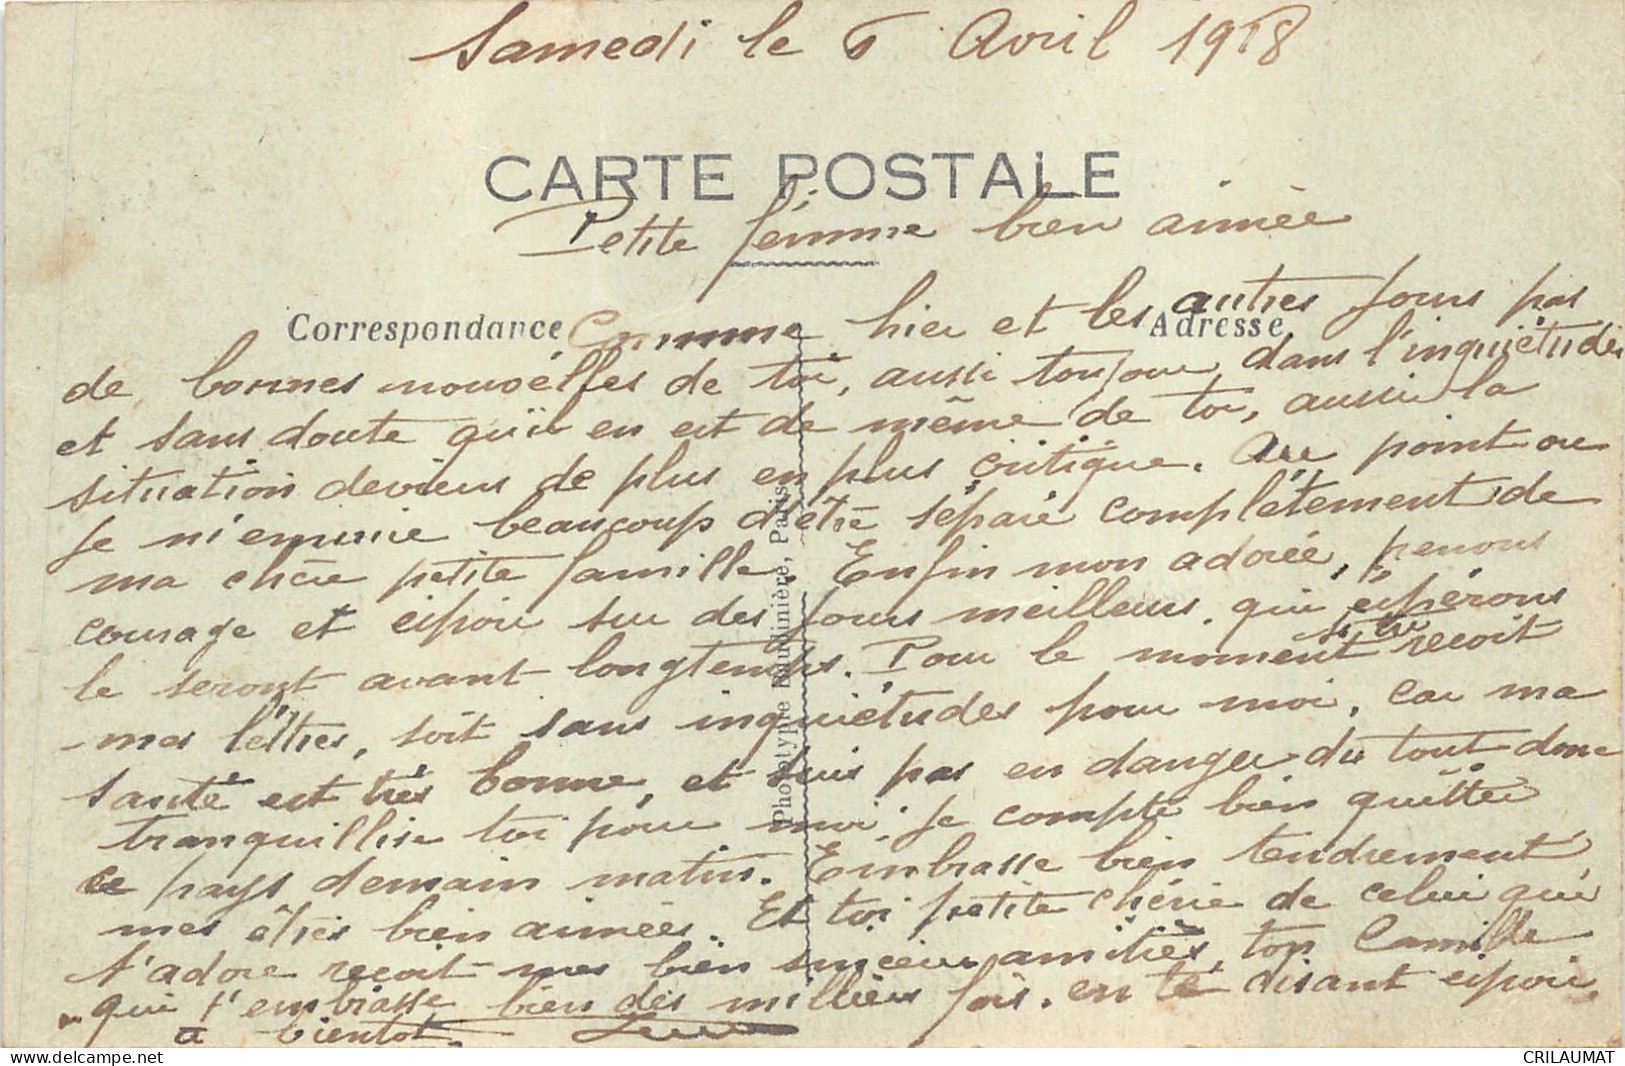 Samedi le 6 Avril 1918
CARTE POSTALE
Petite femme bien aimée
Correspondance
Adresse
Comme hier et les autres jours pas
de bonnes nouvelles de toi, aussi toujours dans l'inquiétudes
et sans doute qu'il en est de même de toi, aussi la
situation deviens de plus en plus critique. Au point ou
je m'ennuie beaucoup d'être séparé complètement de
ma chère petite famille. Enfin mon adorée, prenons
courage et espoir sur des jours meilleurs, qui espérons
le seront avant longtemps. Pour le moment si tu recoit
mes lettres, soit sans inquiétudes pour moi, car ma
santé est très bonne, et suis pas en danger du tout donc
tranquillise toi pour moi, je compte bien quitter
ce pays demain matin. Embrasse bien tendrement
mes êtres bien aimées. Et toi petite chérie de celui qui
t'adore recoit mes bien sincères amitiés, ton Camille
qui t'embrasse bien des milliers fois. en te disant espoir.
a bientot.
Phototype Baudinière, Paris
CRILAUMAT